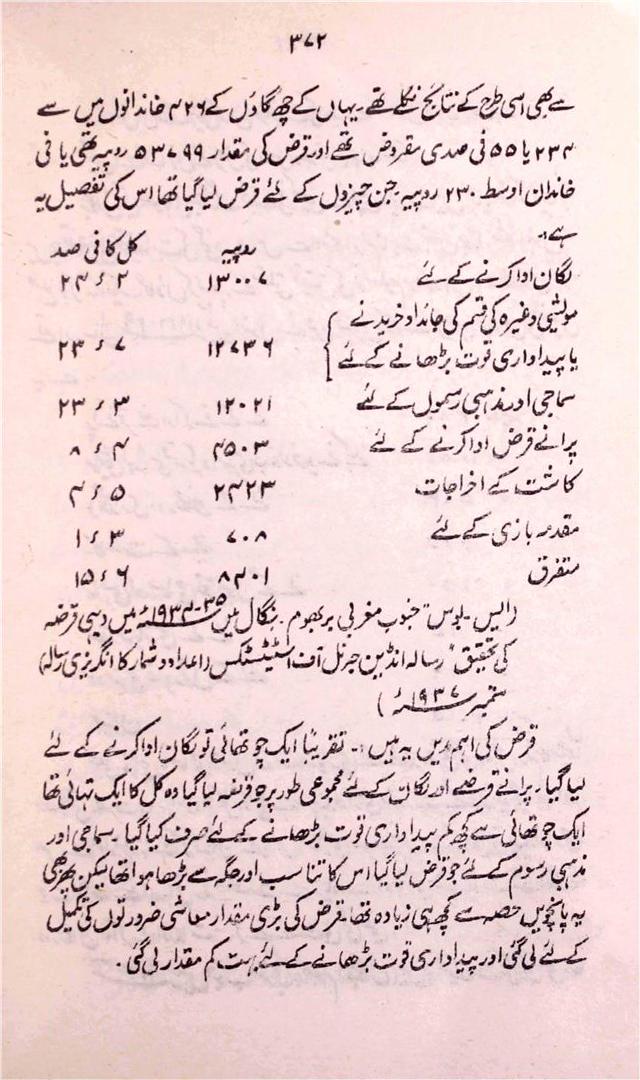 ۳۷۲
سے بھی اسی طرح کے نتائج نکلے تھے۔ یہاں کے چھ گاؤں کے ۴۲۶ خاندانوں میں سے
۲۳۴ یا ۵۵ فی صدی مقروض تھے اور قرض کی مقدار ۵۳۷۹۹ روپیہ تھی یا فی
خاندان اوسط ۲۳۰ روپیہ۔ جن چیزوں کے لئے قرض لیا گیا تھا اس کی تفصیل یہ
ہے:۔
روپیہ کل کا فی صد
لگان ادا کرنے کے لئے ۱۳۰۰۷ ۲۴٫۲
مویشی وغیرہ کی قسم کی جائداد خریدنے
یا پیداداری قوت بڑھانے کے لئے } ۱۲۷۳۶ ۲۳٫۷
سماجی اور مذہبی رسموں کے لئے ۱۲۰۲۱ ۲۳٫۳
پرانے قرض ادا کرنے کے لئے ۴۵۰۳ ۸٫۴
کاشت کے اخراجات ۲۴۲۳ ۴٫۵
مقدمہ بازی کے لئے ۷۰۸ ۱٫۳
متفرق ۸۴۰۱ ۱۵٫۶
(ایس۔ بوس "جنوب مغربی بربھوم۔ بنگال میں ۳۵-۱۹۳۴ء میں دیہی قرضہ
کی تحقیق" رسالہ انڈین جرنل آف اسٹیٹسٹکس (اعداد و شمار کا انگریزی رسالہ)
ستمبر ۱۹۳۷ء)
قرض کی اہم مدیں یہ ہیں:۔ تقریباً ایک چوتھائی تو لگان ادا کرنے کے لئے
لیا گیا۔ پرانے قرضے اور لگان کے لئے مجموعی طور پر جو قرضہ لیا گیا وہ کل کا ایک تہائی تھا
ایک چوتھائی سے کچھ کم پیداداری قوت بڑھانے کے لئے صرف کیا گیا۔ سماجی اور
مذہبی رسوم کے لئے جو قرض لیا گیا اس کا تناسب اور جگہ سے بڑھا ہوا تھا لیکن پھر بھی
یہ پانچویں حصہ سے کچھ ہی زیادہ تھا۔ قرض کی بڑی مقدار معاشی ضرورتوں کی تکمیل
کے لئے لی گئی اور پیداداری قوت بڑھانے کے لئے بہت کم مقدار لی گئی۔